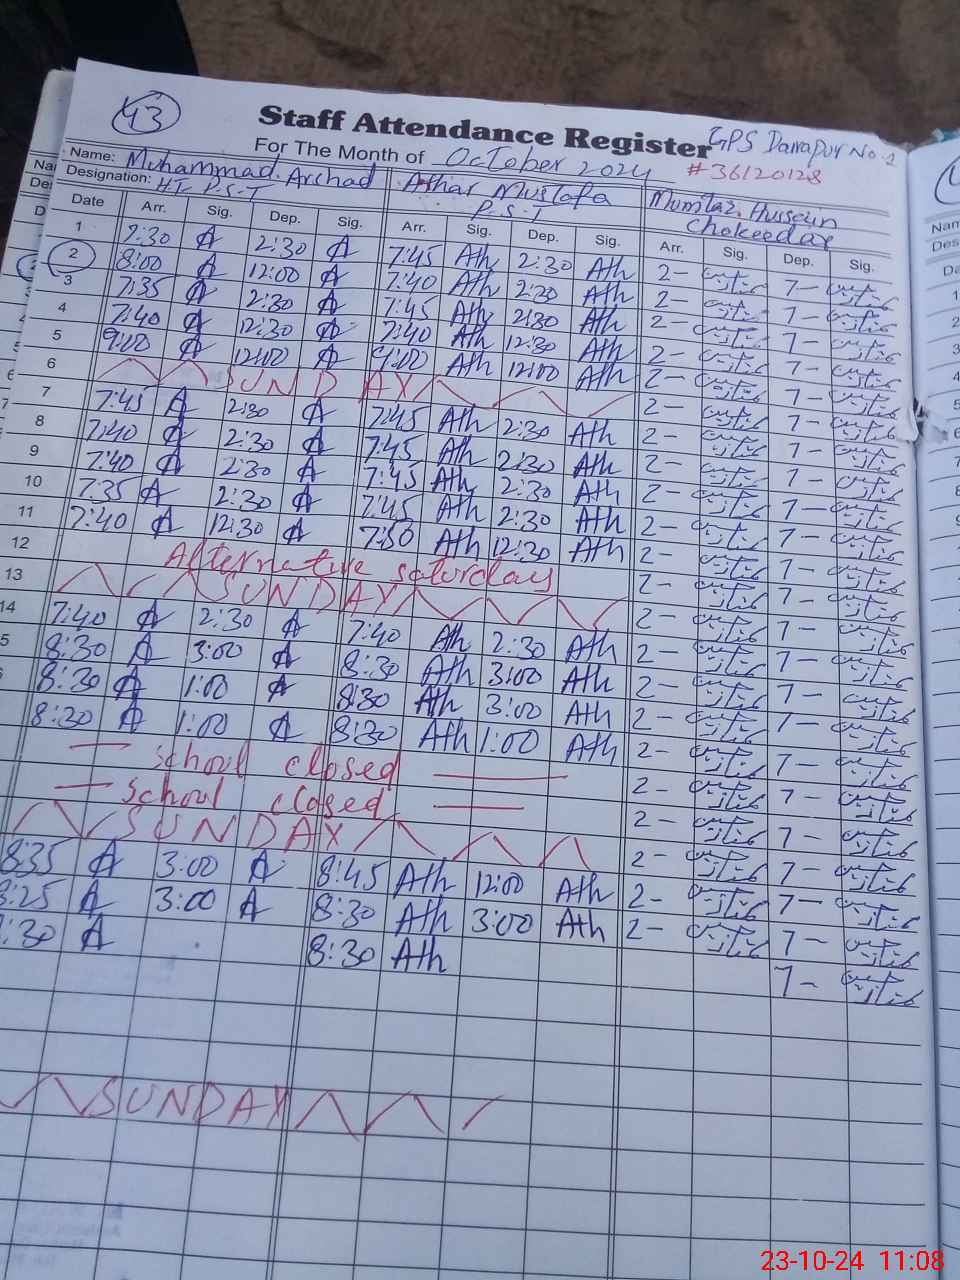 43
Staff Attendance Register
GPS Danapur No-1
For The Month of October 2024
# 36120128
Name: Muhammad. Arshad Athar Mustafa Mumtaz. Hussein
Designation: HT P.S.T P.S.T Chokeedar
Date Arr. Sig. Dep. Sig. Arr. Sig. Dep. Sig. Arr. Sig. Dep. Sig.
1 7:30 A 2:30 A 7:45 Ath 2:30 Ath 2- ممتاز حسین 7- ممتاز حسین
2 8:00 A 12:00 A 7:40 Ath 2:30 Ath 2- ممتاز حسین 7- ممتاز حسین
3 7:35 A 2:30 A 7:45 Ath 2:30 Ath 2- ممتاز حسین 7- ممتاز حسین
4 7:40 A 12:30 A 7:40 Ath 12:30 Ath 2- ممتاز حسین 7- ممتاز حسین
5 9:00 A 12:00 A 9:00 Ath 12:00 Ath 2- ممتاز حسین 7- ممتاز حسین
6 SUNDAY 2- ممتاز حسین 7- ممتاز حسین
7 7:45 A 2:30 A 7:45 Ath 2:30 Ath 2- ممتاز حسین 7- ممتاز حسین
8 7:40 A 2:30 A 7:45 Ath 2:30 Ath 2- ممتاز حسین 7- ممتاز حسین
9 7:40 A 2:30 A 7:45 Ath 2:30 Ath 2- ممتاز حسین 7- ممتاز حسین
10 7:35 A 2:30 A 7:45 Ath 2:30 Ath 2- ممتاز حسین 7- ممتاز حسین
11 7:40 A 12:30 A 7:50 Ath 12:30 Ath 2- ممتاز حسین 7- ممتاز حسین
12 Alternative saturdays 2- ممتاز حسین 7- ممتاز حسین
13 SUNDAY 2- ممتاز حسین 7- ممتاز حسین
14 7:40 A 2:30 A 7:40 Ath 2:30 Ath 2- ممتاز حسین 7- ممتاز حسین
5 8:30 A 3:00 A 8:30 Ath 3:00 Ath 2- ممتاز حسین 7- ممتاز حسین
8:30 A 1:00 A 8:30 Ath 3:00 Ath 2- ممتاز حسین 7- ممتاز حسین
8:30 A 1:00 A 8:30 Ath 1:00 Ath 2- ممتاز حسین 7- ممتاز حسین
school closed 2- ممتاز حسین 7- ممتاز حسین
school closed 2- ممتاز حسین 7- ممتاز حسین
SUNDAY 2- ممتاز حسین 7- ممتاز حسین
8:35 A 3:00 A 8:45 Ath 12:00 Ath 2- ممتاز حسین 7- ممتاز حسین
8:25 A 3:00 A 8:30 Ath 3:00 Ath 2- ممتاز حسین 7- ممتاز حسین
:30 A 8:30 Ath 7- ممتاز حسین
SUNDAY
23-10-24 11:08